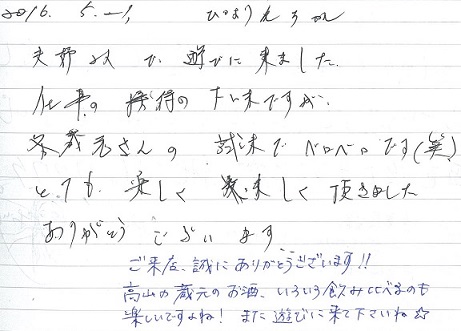 2016. 5.
夫婦2人で遊びに来ました。
仕事の接待の下い味ですが、
各蔵元さんの試味でベロベロです(笑)
とても楽しく美味しく頂きました
ありがとうございます
ご来店、誠にありがとうございます!!
高山の蔵元のお酒、いろいろ飲み比べるのも
楽しいですよね! また遊びに来て下さいね☆